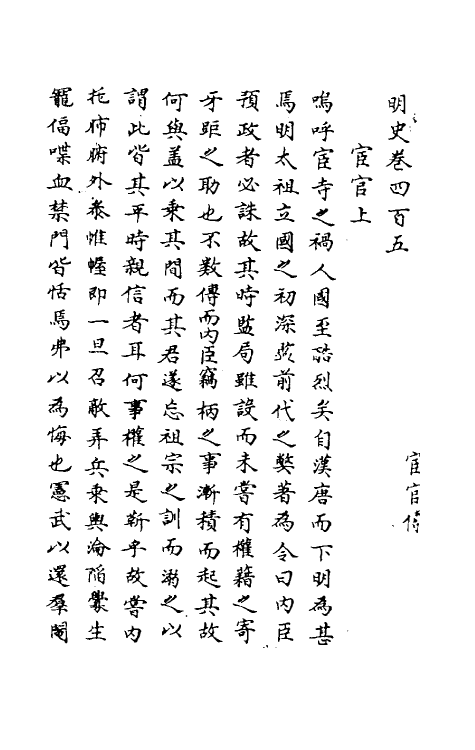 明史卷四百五
宦官傳
宦官上
嗚呼宦寺之禍人國至酷烈矣自漢唐而下明為甚
焉明太祖立國之初深鑒前代之弊著為令曰內臣
預政者必誅故其時監局雖設而未嘗有權藉之寄
牙距之助也不數傳而內臣竊柄之事漸積而起其故
何與蓋以乘其間而其君遂忘祖宗之訓而溺之以
謂此皆其平時親信者耳何事權之是靳乎故嘗內
托肺腑外參惟幄即一旦召敵弄兵乘輿淪陷釁生
寵偪喋血禁門皆恬焉弗以為悔也憲武以還羣閹